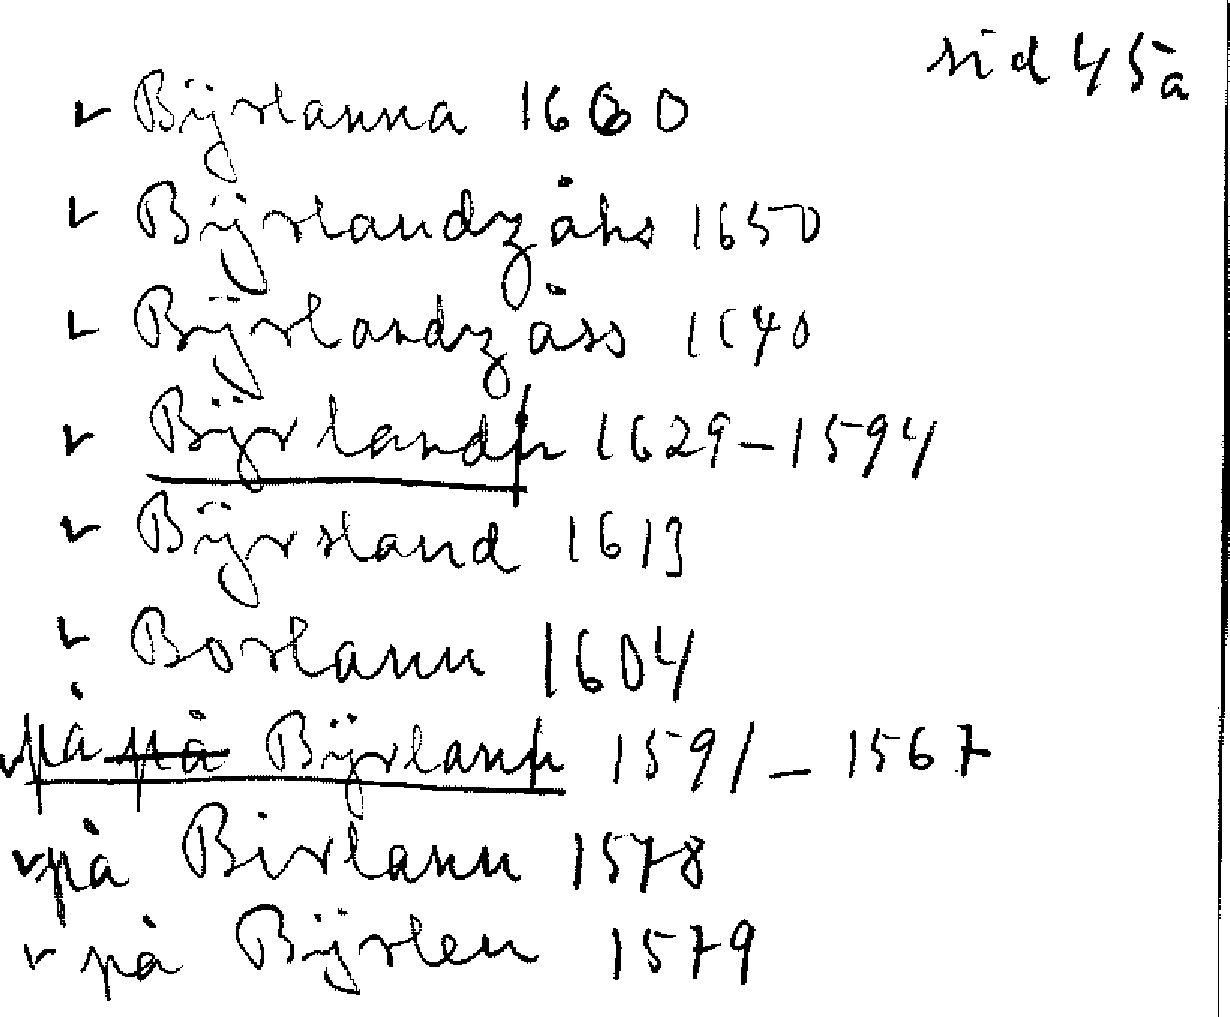 sid 45a
✓ Bÿrlanna 1660
✓ Bÿrlandzåhs 1650
✓ Bÿrlandzåss 1640
✓ Bÿrland 1629-1594
✓ Bÿrsland 1613
✓ Borlann 1604
✓ på Bÿrlann 1591-1567
✓ på Birlann 1578
✓ på Bÿrlen 1579